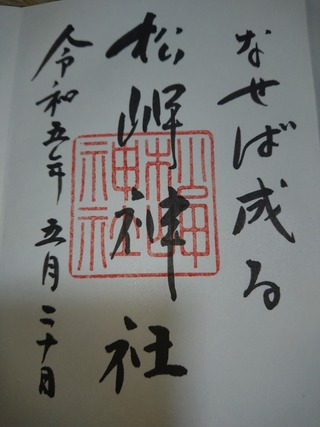 なせば成る
松岬神社
松岬神社
令和五年 五月二十日